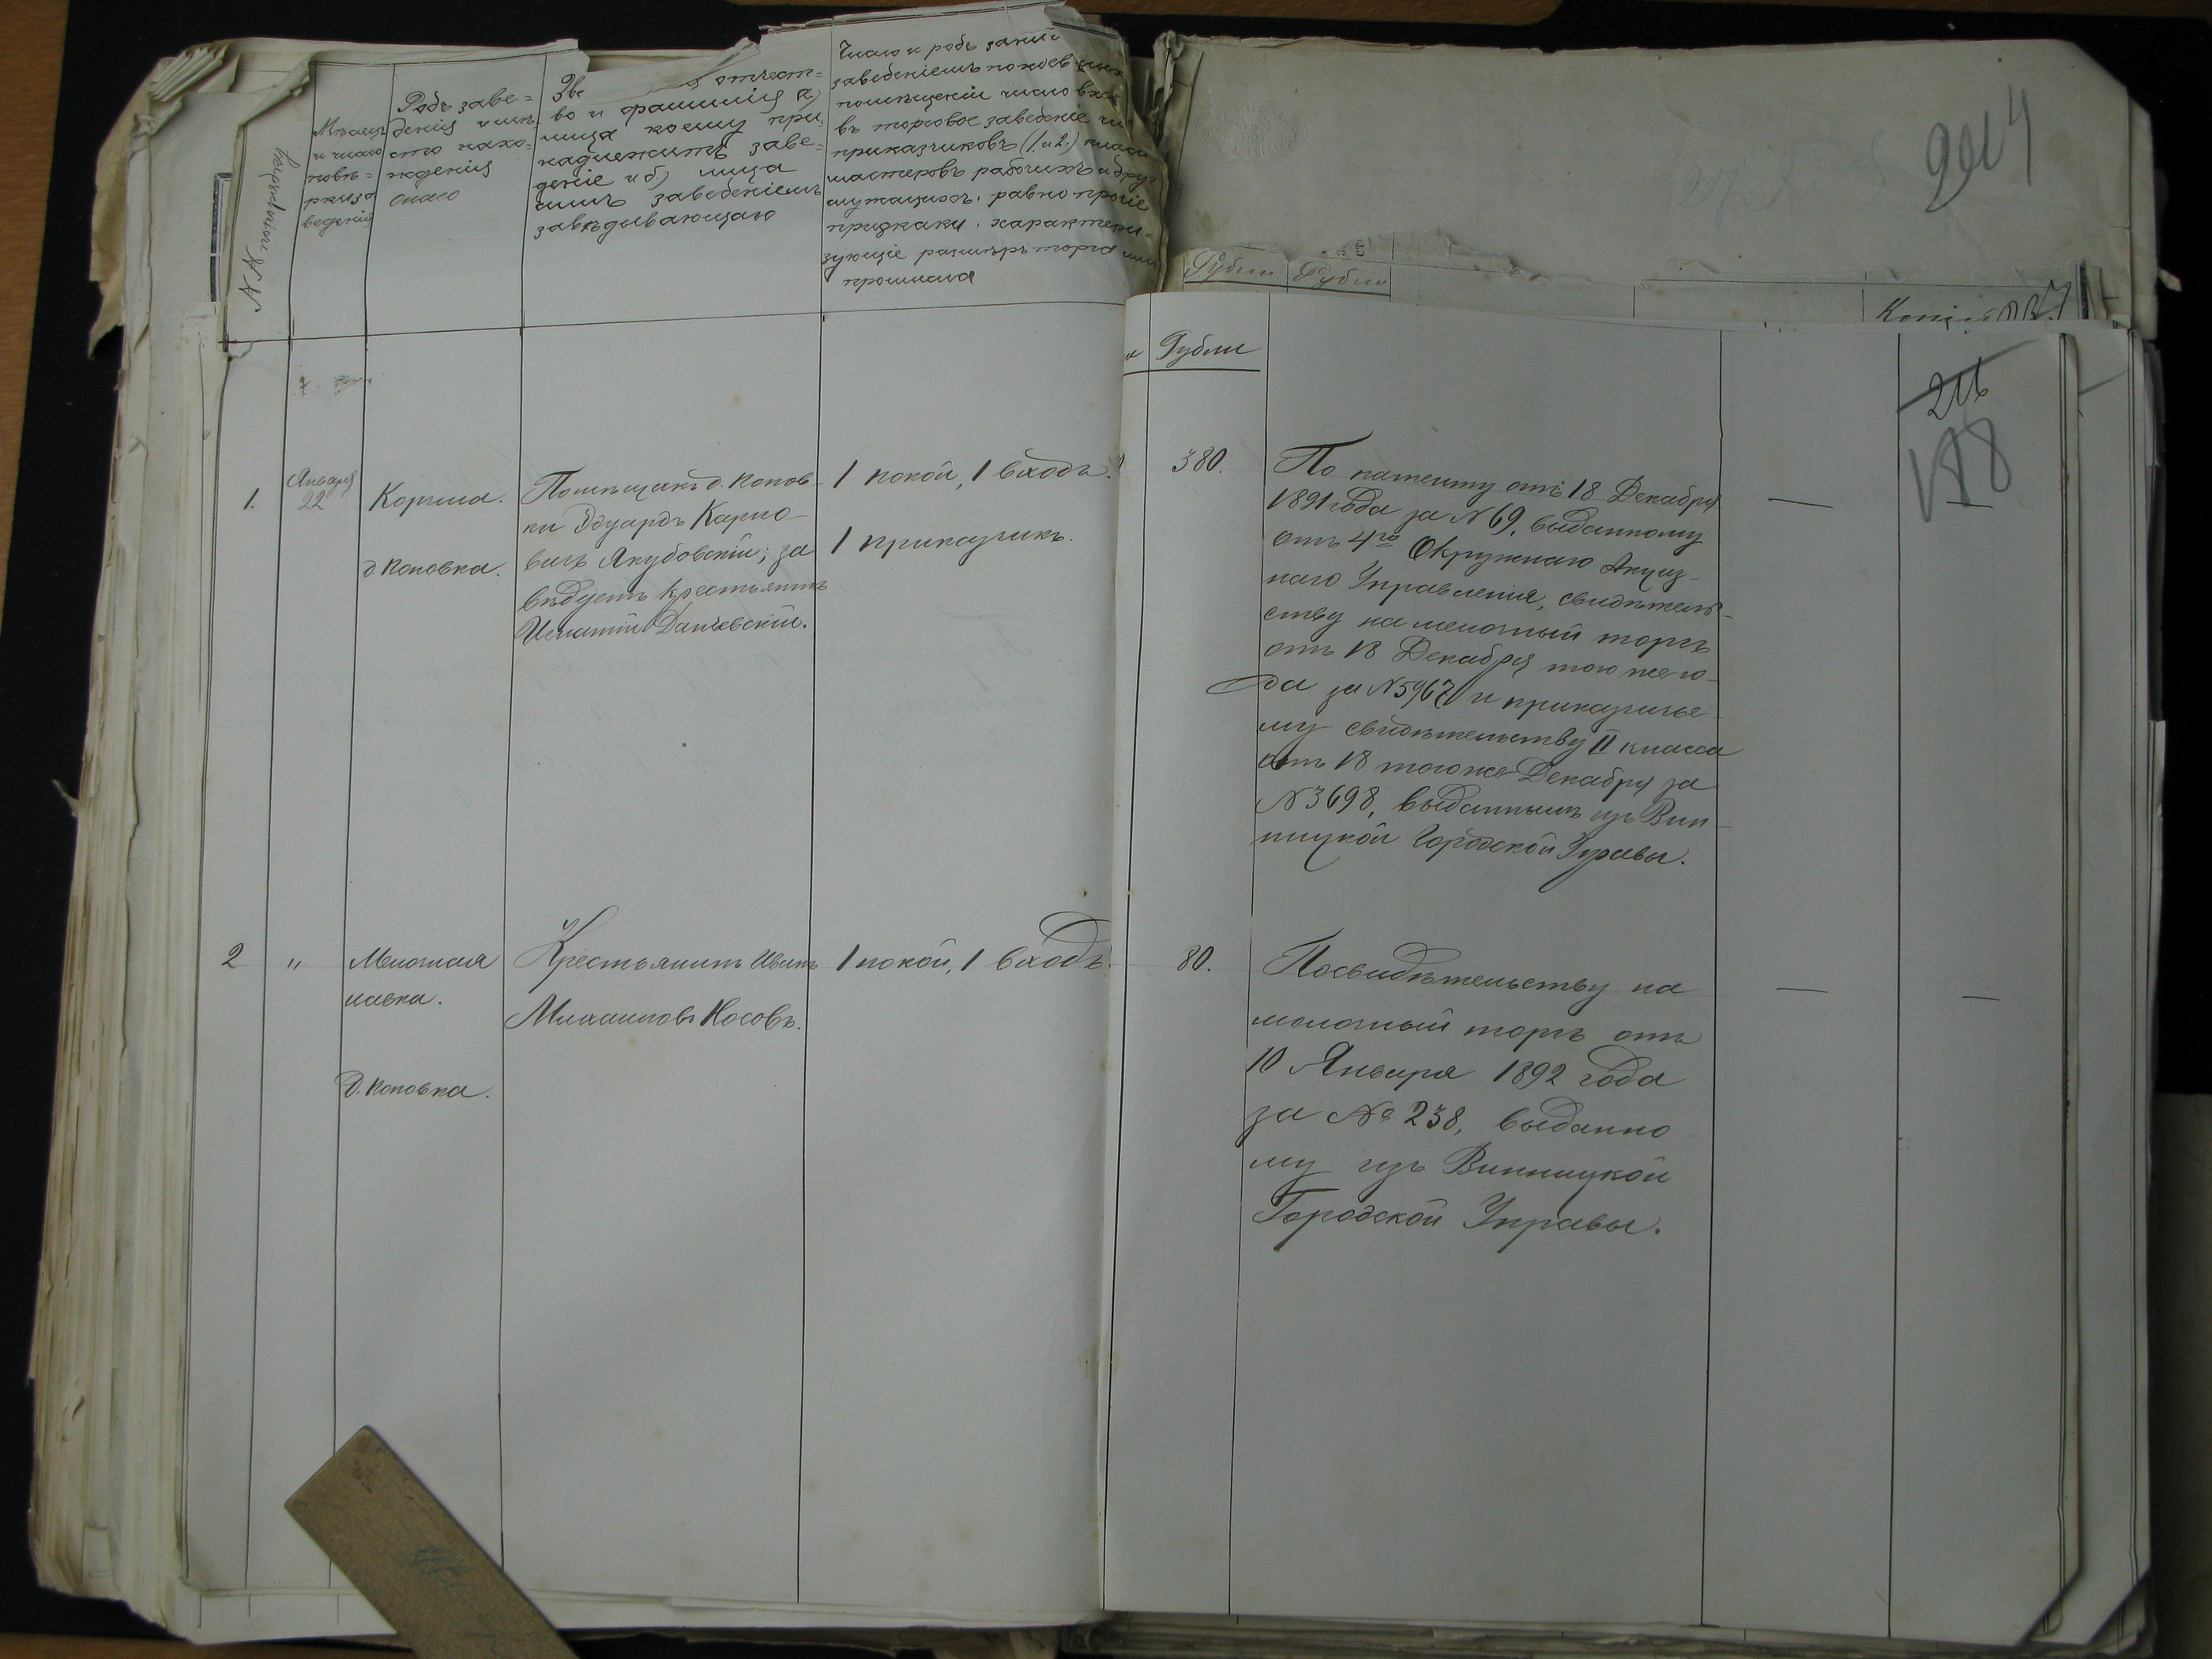 №№ по порядку
Мѣсяцъ
и число
повѣ=
рки за
веденія
Родъ заве=
денія и мѣ-
сто нахо=
жденія
онаго
отчест=
во и фамилія а)
лица коему при-
надлежитъ заве=
деніе и б) лица
симъ заведеніемъ
завѣдывающаго
Число и родъ
заведеніемъ покоевъ
помѣщеніи число
въ торговое заведеніе
приказчиковъ (1. и 2.)
мастеровъ рабочихъ и друг
служащихъ, равно прочіе
признаки, характери-
зующіе размѣръ торга или
промысла
Рубли Рубли
2014
Рубли
216
188
1.
Января
22
Корчма.
д. Поповка.
Помѣщикъ д. Попов-
ки Эдуардъ Карло-
вичъ Якубовскій; за
вѣдуетъ крестьянинъ
Игнатій Данчевскій.
1 покой, 1 входъ.
1 приказчикъ.
380.
По патенту отъ 18 Декабря
1891 года за № 69, выданному
отъ 4го Окружнаго Акциз-
наго Управленія, свидѣтель-
ству на мелочный торгъ
отъ 18 Декабря того же го-
да за № 5967 и приказчичье-
му свидѣтельству II класса
отъ 18 того же Декабря за
№ 3698, выданнымъ изъ Вин-
ницкой Городской Управы.
2
"
Мелочная
лавка.
Д. Поповка.
Крестьянинъ Иванъ
Михаиловъ Носовъ.
1 покой, 1 входъ.
80.
По свидѣтельству на
мелочный торгъ отъ
10 Января 1892 года
за № 238, выданно
му изъ Винницкой
Городской Управы.